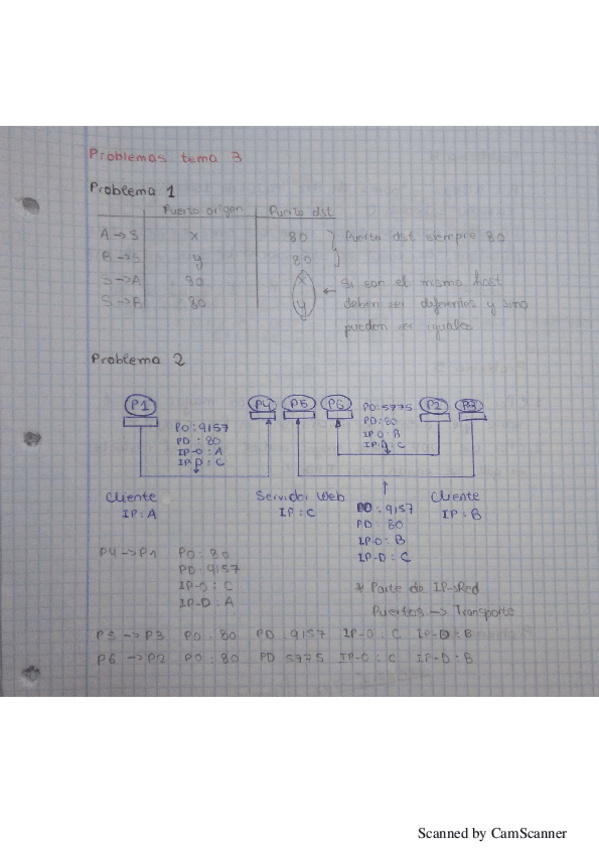 Problemas tema 3
Problema 1
Puerto origen Puerto dst
A → S x 80 Puerto dst siempre 80
B → S y 80
S → A 80 x ← Si son el mismo host
S → B 80 y deben ser diferentes y sino
pueden ser iguales
Problema 2
P1 P4 P5 P6 P2 P3
PO: 9157
PD : 80
IP-O : A
IP-D : C
PO: 5775
PD: 80
IP-O : B
IP-D : C
Cliente
IP: A
Servidor Web
IP : C
Cliente
IP : B
PO : 9157
PD : 80
IP-O : B
IP-D : C
P4 → P1 PO : 80
PD: 9157
IP-O : C
IP-D : A
* Parte de IP → Red
Puertos → Transporte
P5 → P3 PO : 80 PD : 9157 IP-O : C IP-D : B
P6 → P2 PO : 80 PD 5775 IP-O : C IP-D : B
Scanned by CamScanner